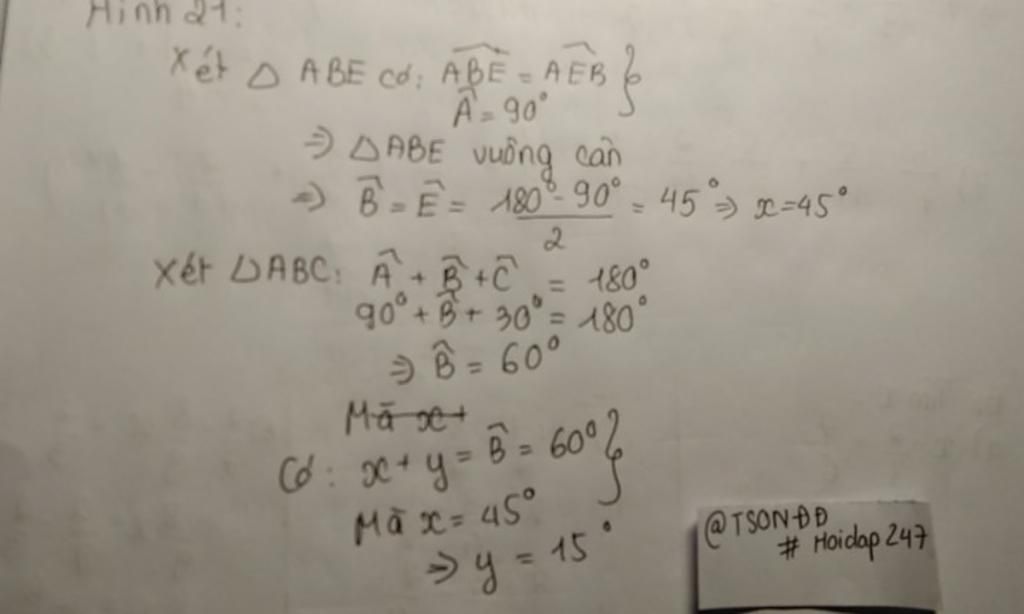 Hình 21:
Xét △ ABE có: ABE = AEB }
Â = 90°
⇒ △ABE vuông cân
⇒ B̂ = Ê = (180° - 90°)/2 = 45° ⇒ x = 45°
Xét △ABC: Â + B̂ + Ĉ = 180°
90° + B̂ + 30° = 180°
⇒ B̂ = 60°
Mà x +
Có: x + y = B̂ = 60° }
Mà x = 45°
⇒ y = 15°
@TSON-ĐĐ
# Hoidap247